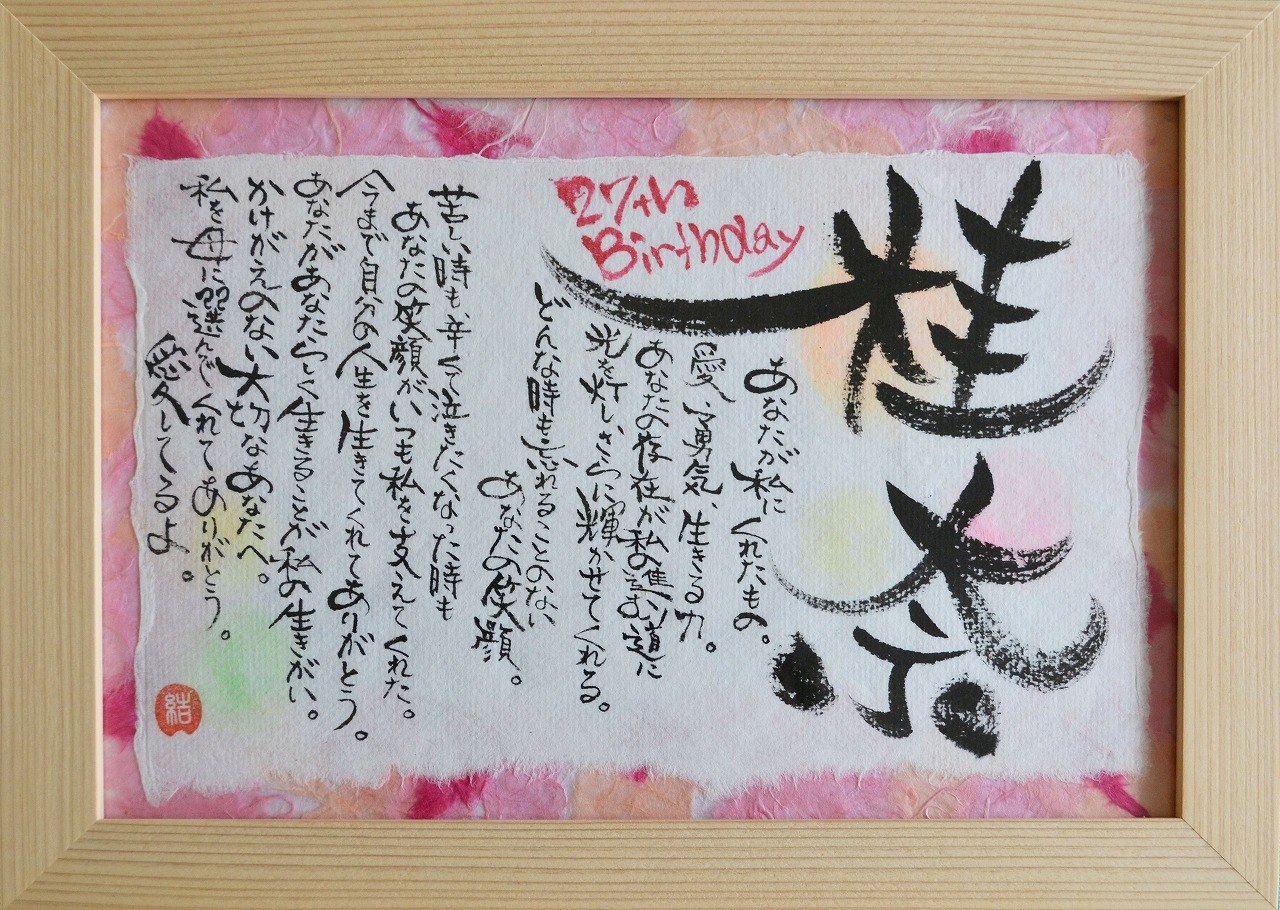 桂奈
27th
Birthday
あなたが私にくれたもの。
愛、勇気、生きる力。
あなたの存在が私の進む道に
光を灯しさらに輝かせてくれる。
どんな時も忘れることのない
あなたの笑顔。
苦しい時も、辛くて泣きたくなった時も
あなたの笑顔がいつも私を支えてくれた。
今まで自分の人生を生きてくれてありがとう。
あなたがあなたらしく生きることが私の生きがい。
かけがえのない大切なあなたへ。
私を母に選んでくれてありがとう。
愛してるよ。
結